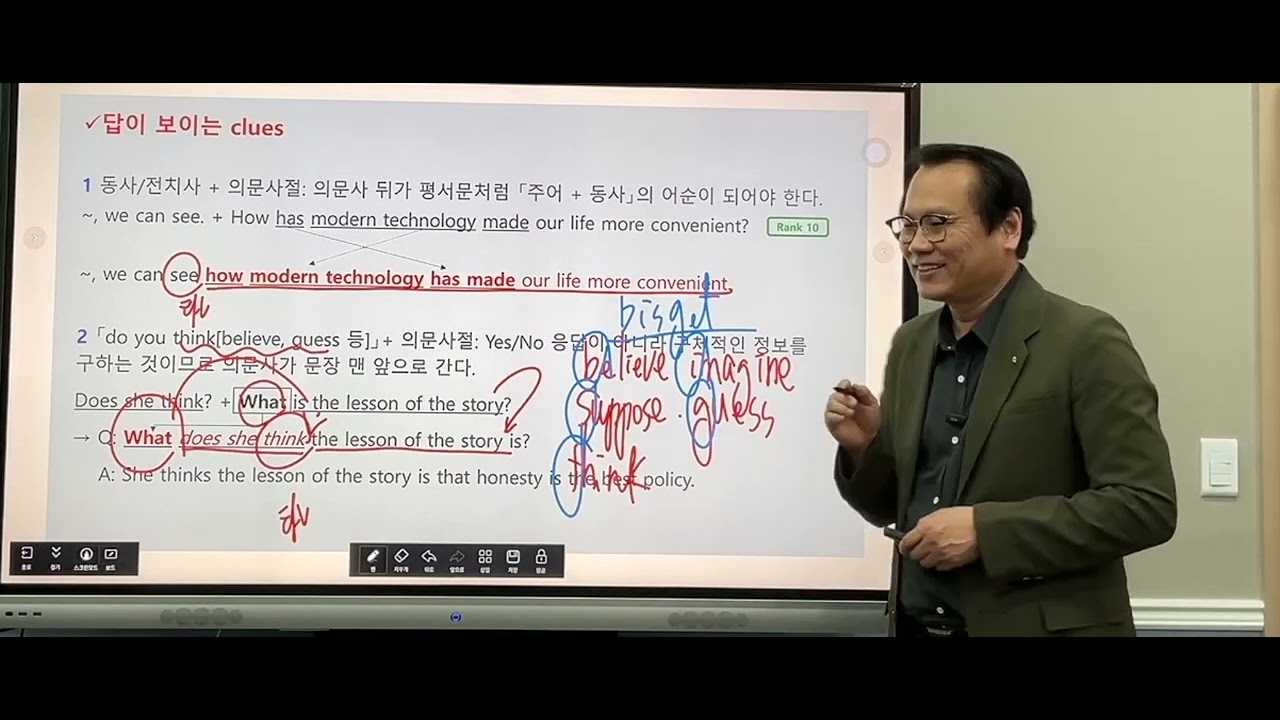 ✓답이 보이는 clues
1 동사/전치사 + 의문사절: 의문사 뒤가 평서문처럼 「주어 + 동사」의 어순이 되어야 한다.
~, we can see. + How has modern technology made our life more convenient? Rank 10
~, we can see how modern technology has made our life more convenient.
bisget
2 「do you think[believe, guess 등]」+ 의문사절: Yes/No 응답이 아니라 구체적인 정보를
구하는 것이므로 의문사가 문장 맨 앞으로 간다.
believe imagine
Does she think? + What is the lesson of the story?
suppose . guess
→ Q: What does she think the lesson of the story is?
think.
A: She thinks the lesson of the story is that honesty is the best policy.
종료 판서 스크린모드 보드
펜 지우개 뒤로 앞으로 삽입 저장 잠금